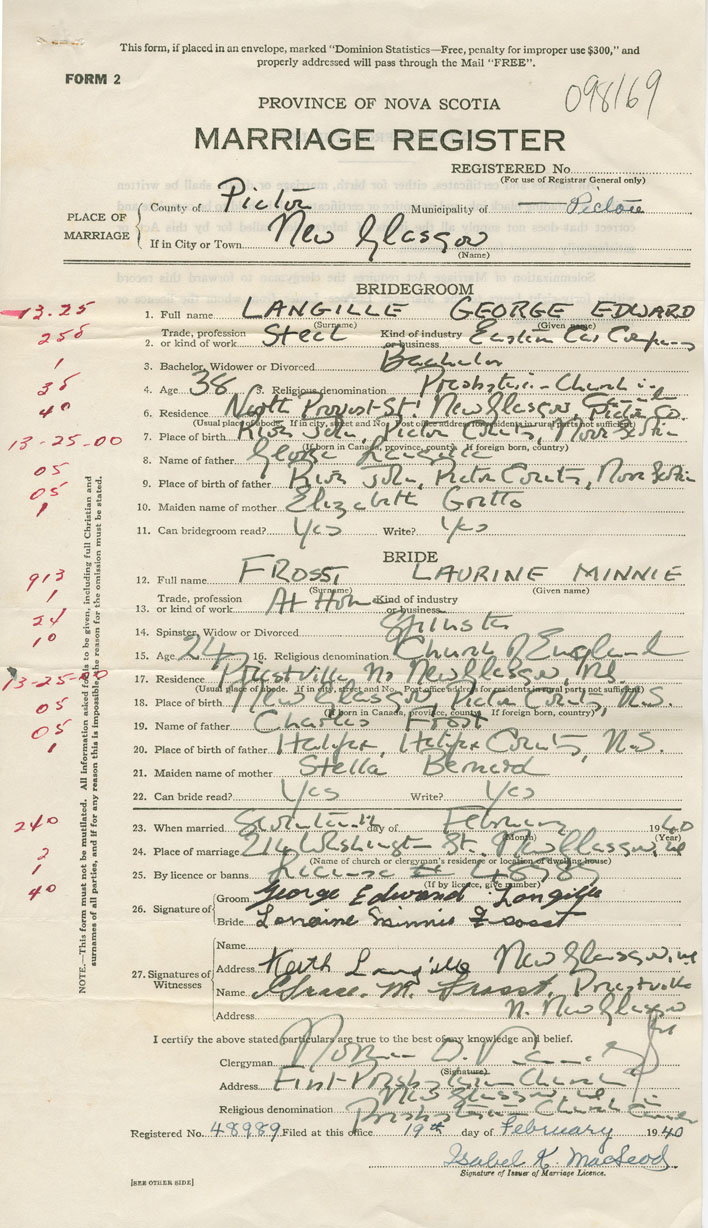 This form, if placed in an envelope, marked "Dominion Statistics—Free, penalty for improper use $300," and
properly addressed will pass through the Mail "FREE".
FORM 2
098169
PROVINCE OF NOVA SCOTIA
MARRIAGE REGISTER
REGISTERED No.
(For use of Registrar General only)
PLACE OF MARRIAGE
County of Pictou Municipality of — Pictou
If in City or Town New Glasgow
(Name)
BRIDEGROOM
13.25 1. Full name LANGILLE GEORGE EDWARD
(Surname) (Given name)
250 2. Trade, profession or kind of work Steel Kind of industry or business Eastern Car Company
1 3. Bachelor, Widower or Divorced Bachelor
38 4. Age 38 5. Religious denomination Presbyterian Church in Canada
40 6. Residence North Provost St. New Glasgow, Pictou Co.
(Usual place of abode. If in city, street and No. Post office address for residents in rural parts not sufficient)
13-25-00 7. Place of birth River John, Pictou County, Nova Scotia
(If born in Canada, province, county. If foreign born, country)
05 8. Name of father George Langille
05 9. Place of birth of father River John, Pictou County, Nova Scotia
1 10. Maiden name of mother Elizabeth Gratto
11. Can bridegroom read? Yes Write? Yes
BRIDE
913 12. Full name FROSST, LAURINE MINNIE
(Surname) (Given name)
1 13. Trade, profession or kind of work At Home Kind of industry or business
24 14. Spinster, Widow or Divorced Spinster
10 15. Age 24 16. Religious denomination Church of England
13-25-00 17. Residence Priestville Nr New Glasgow, N.S.
(Usual place of abode. If in city, street and No. Post office address for residents in rural parts not sufficient)
05 18. Place of birth New Glasgow, Pictou County, N.S.
(If born in Canada, province, county. If foreign born, country)
05 19. Name of father Charles Frosst
1 20. Place of birth of father Halifax, Halifax County, N.S.
21. Maiden name of mother Stella Bernard
22. Can bride read? Yes Write? Yes
240 23. When married Seventeenth day of February 1940
(Month) (Year)
2 24. Place of marriage 216 Washington St. New Glasgow, NS
(Name of church or clergyman's residence or location of dwelling house)
1 25. By licence or banns License # 48989
(If by licence, give number)
40 26. Signature of
Groom George Edward Langille
Bride Lorraine Minnie Frosst
27. Signatures of Witnesses
Name
Address Keith Langille New Glasgow, NS
Name Grace M. Frosst, Priestville
Address N. New Glasgow
I certify the above stated particulars are true to the best of my knowledge and belief.
Clergyman Norman D.
(Signature)
Address First Presbyterian Church
New Glasgow, NS
Religious denomination Presbyterian Church in Canada
Registered No. 48989 Filed at this office 19th day of February 1940
Isabel K. MacLeod
Signature of Issuer of Marriage Licence.
[SEE OTHER SIDE]
NOTE.—This form must not be mutilated. All information asked for is to be given, including full Christian and
surnames of all parties, and if for any reason this is impossible the reason for the omission must be stated.